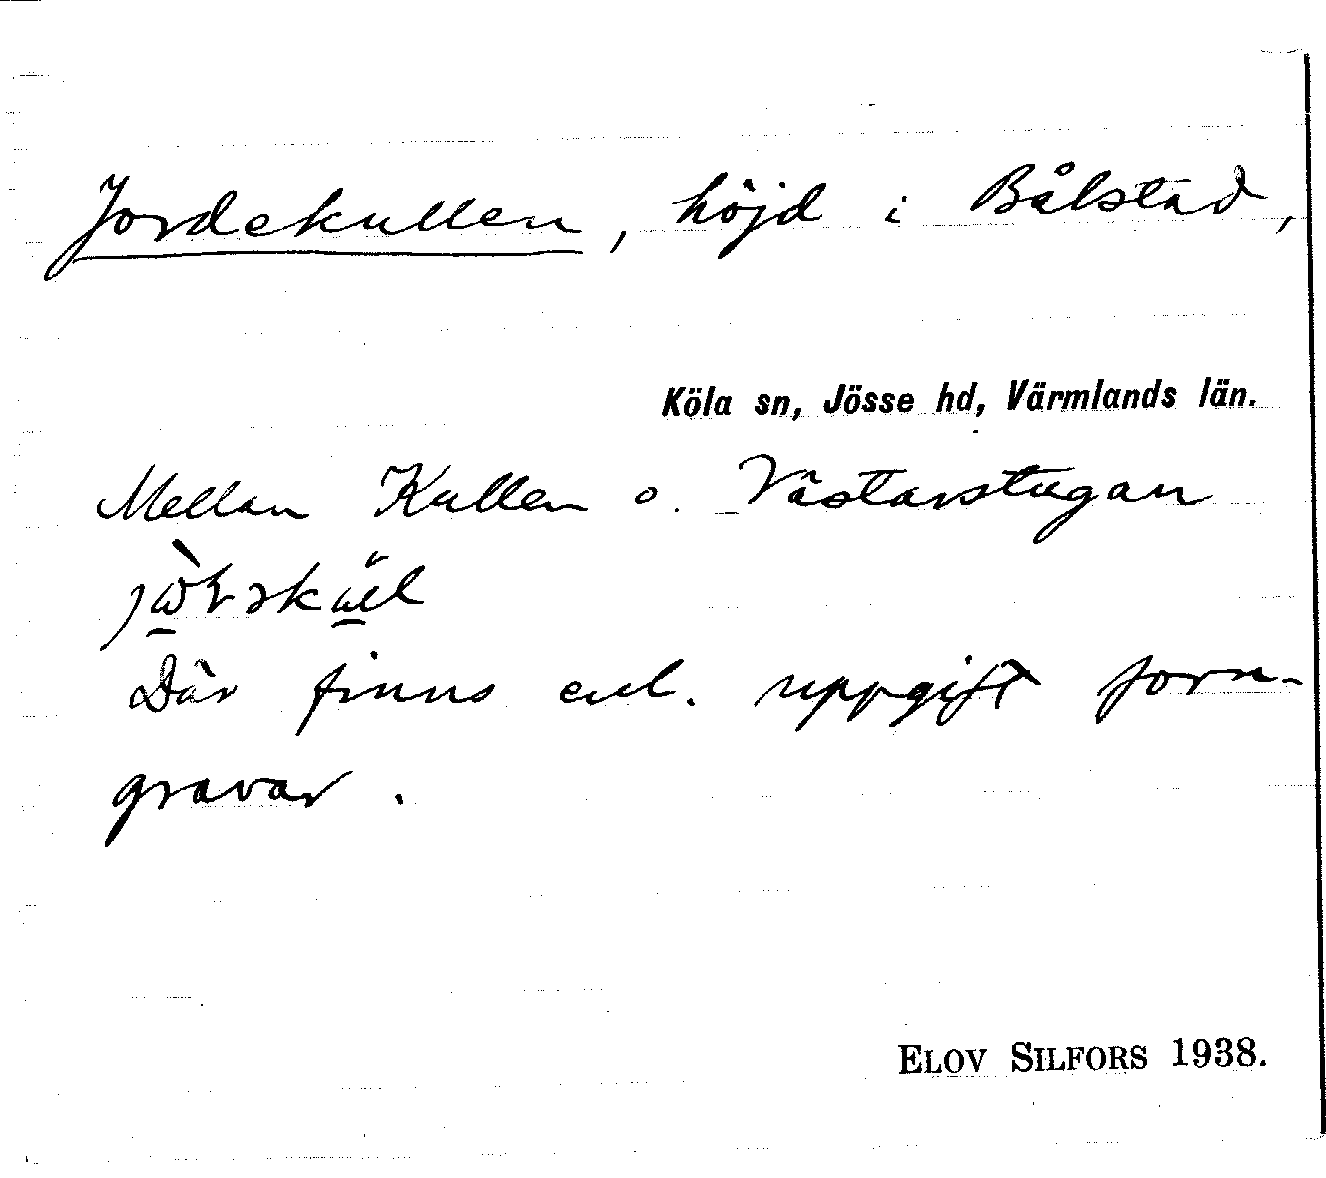 Jordekullen, höjd i Bålstad,
Köla sn, Jösse hd, Värmlands län.
Mellan Kullen o. Västarstugan
Där finns enl. uppgift forn-
gravar.
ELOV SILFORS 1938.